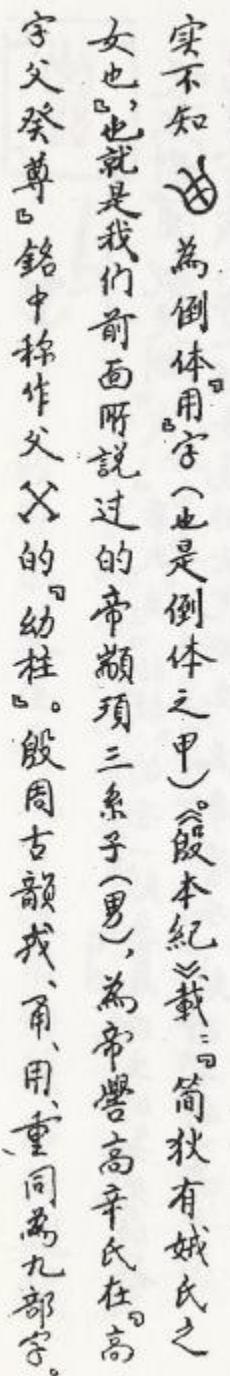 实不知 為倒体『用』字（也是倒体之甲）。《殷本紀》載：『简狄有娀氏之
女也』，也就是我们前面所説过的帝顓頊三系子（男），為帝嚳高辛氏在『高
字父癸尊』銘中称作父 的『幼柱』。殷周古韻戎、甬、用、重同為九部字。